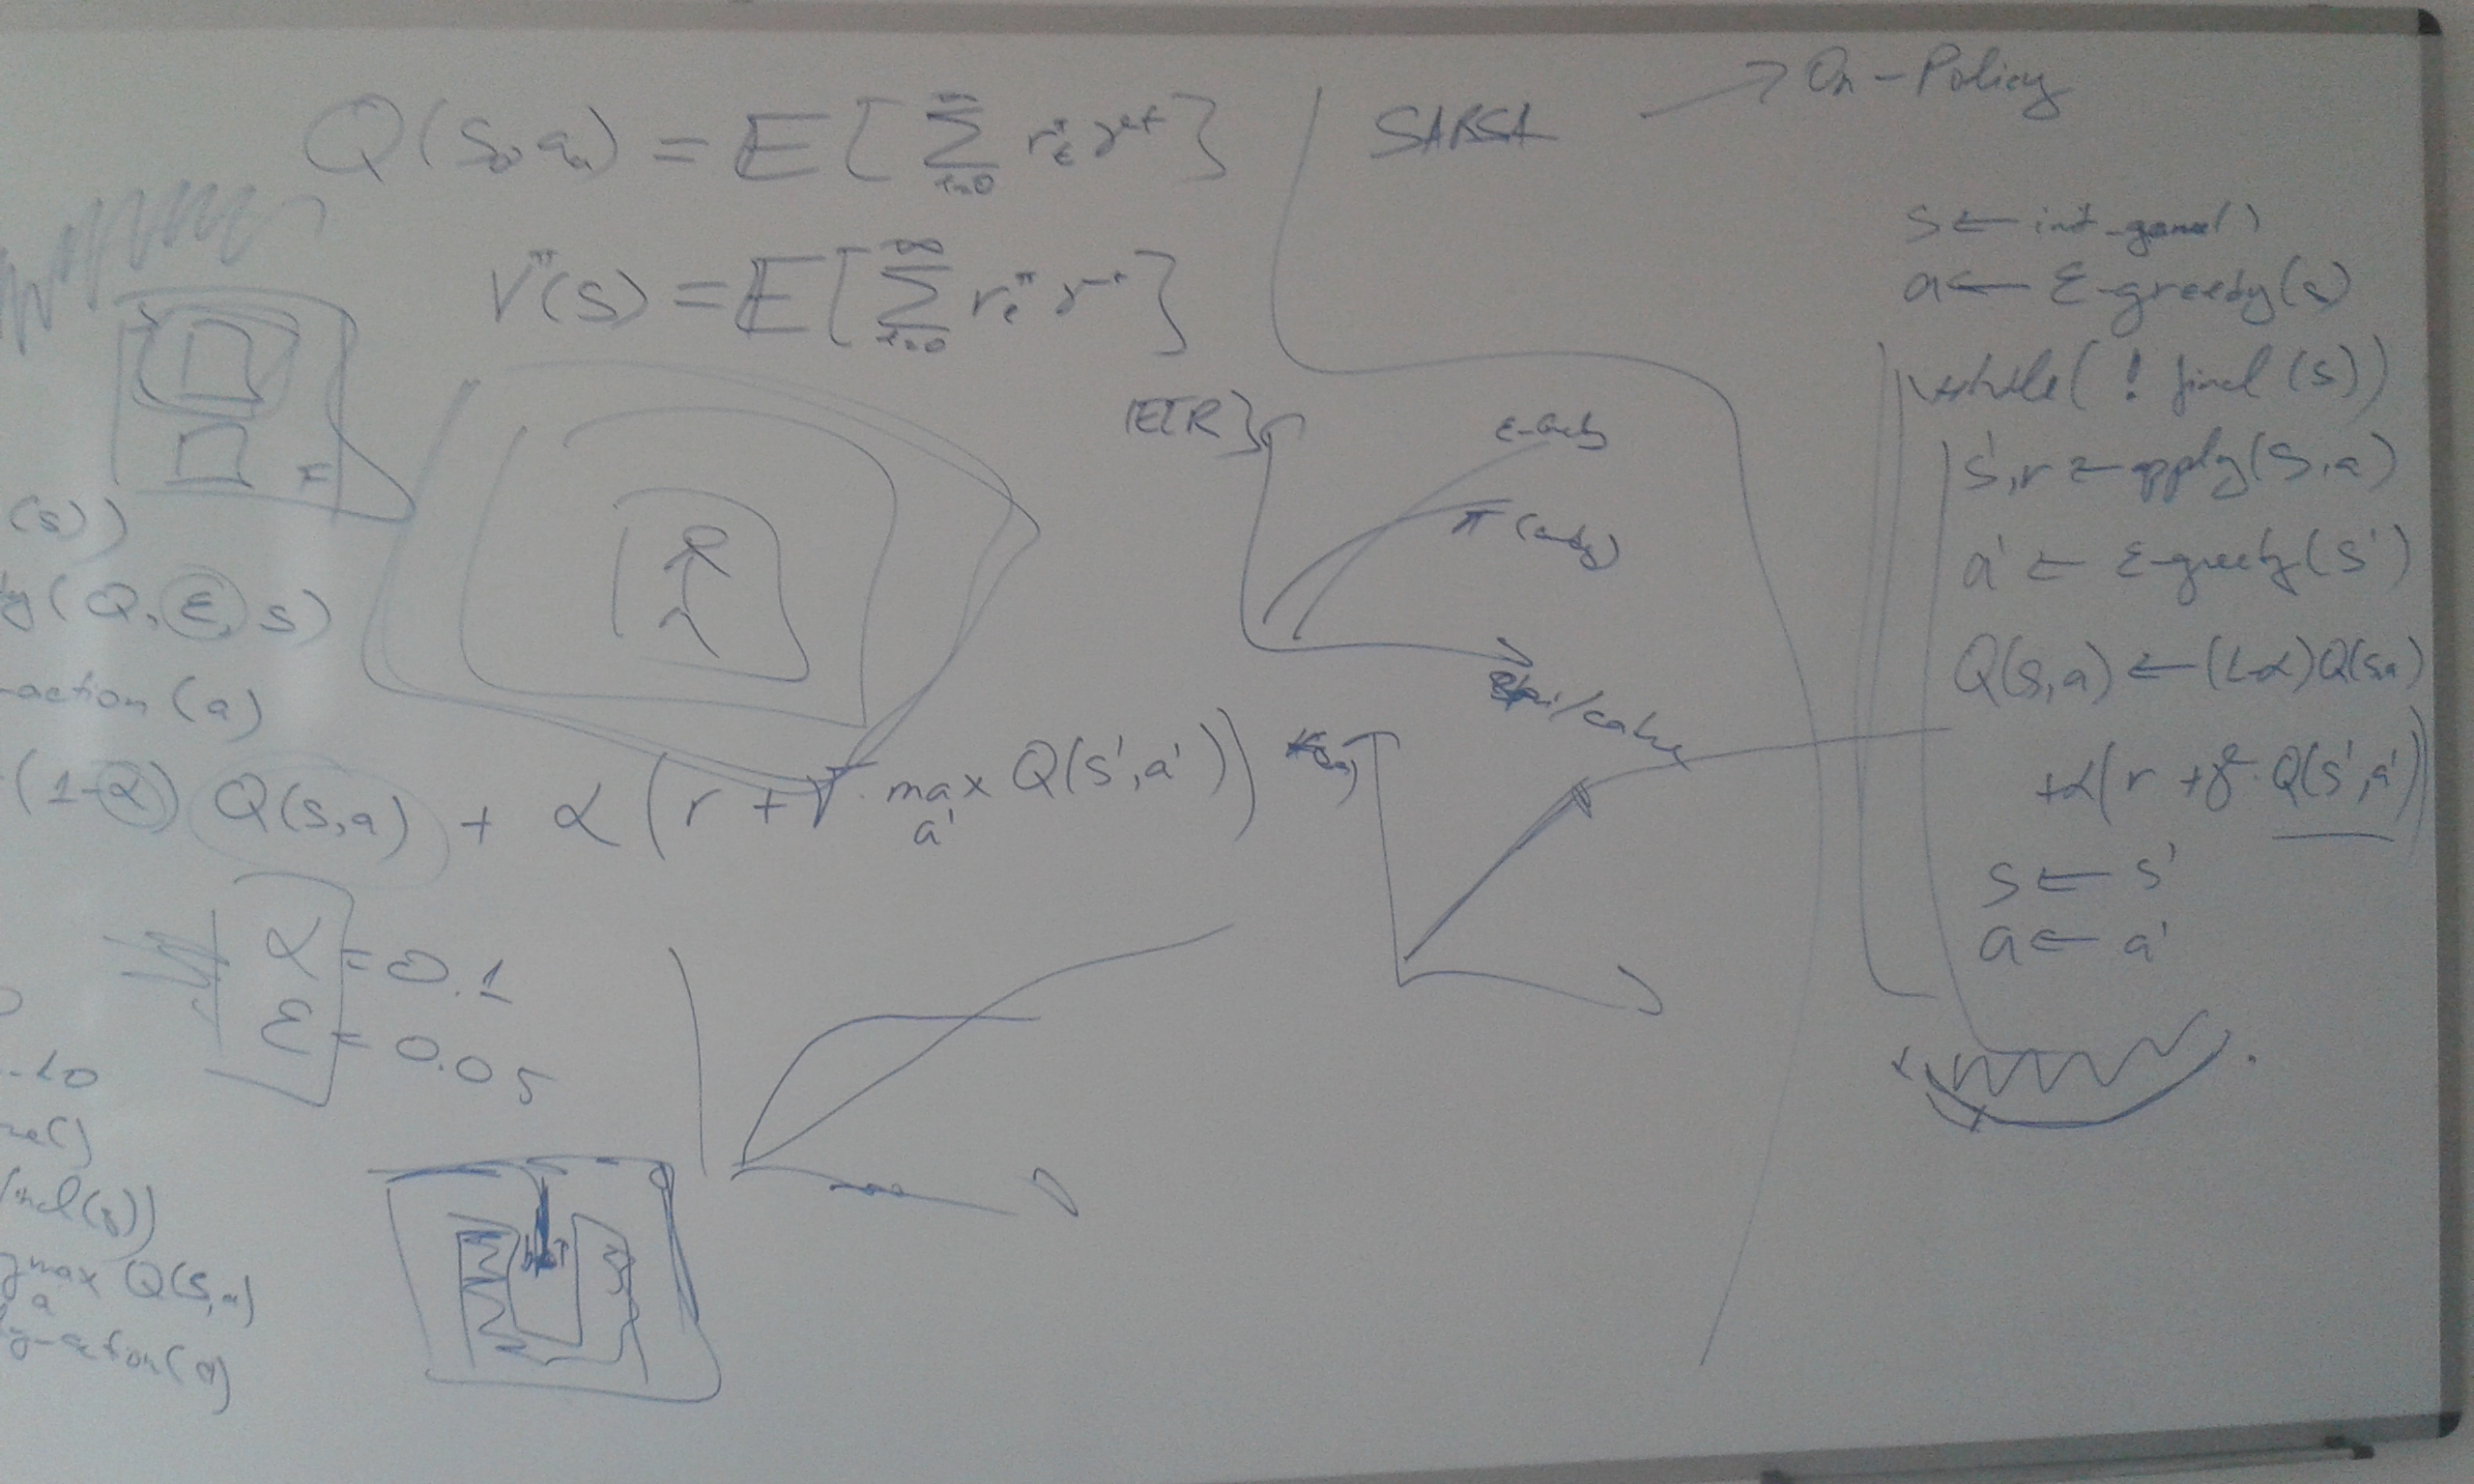 Q(s₀, a₀) = E[∑ₜ₌₀^∞ rₜ^π γ^t]
V^π(s) = E[∑ₜ₌₀^∞ rₜ^π γ^t]
F
(s))
(Q, ε, s)
-action (a)
(1-α) Q(s,a) + α (r + γ · max_a' Q(s',a'))
α = 0.1
ε = 0.05
final(s))
max_a Q(s,a)
-action(a)
E[R]
π
SARSA → On-Policy
s ← init_game()
a ← ε-greedy(s)
while(! final (s))
s',r ← apply(s,a)
a' ← ε-greedy(s')
Q(s,a) ← (1-α)Q(s,a)
+α(r + γ · Q(s',a'))
s ← s'
a ← a'